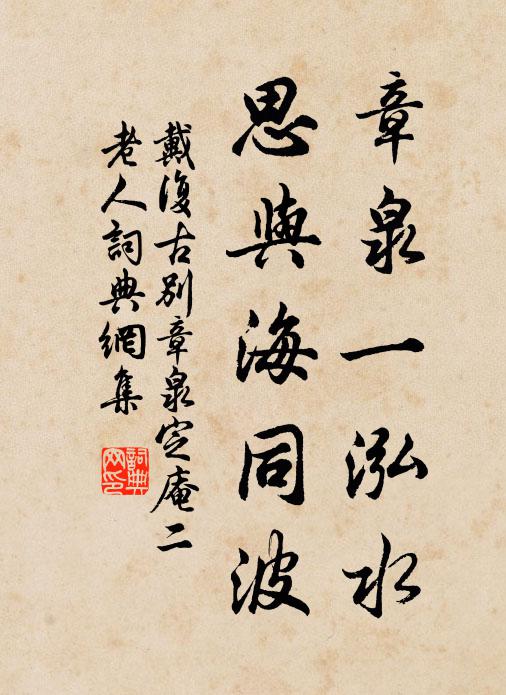 章泉一泓水
思與海同波
戴復古別章泉定庵二
老人詞典網集
詞典網印